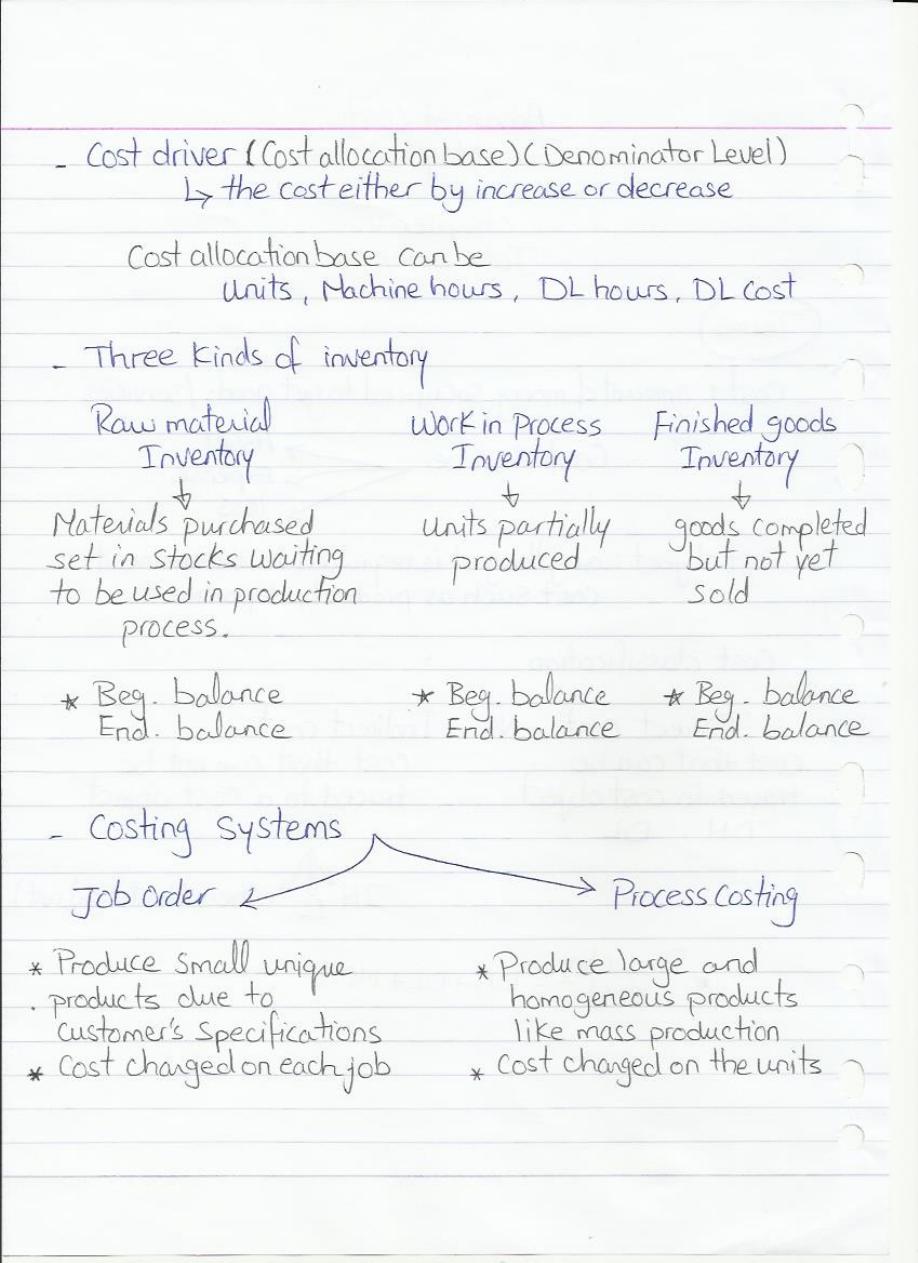 - Cost driver (Cost allocation base) (Denominator Level)
↳ the cost either by increase or decrease
Cost allocation base can be
units, Machine hours, DL hours, DL cost
- Three kinds of inventory
Raw material
Inventory
Materials purchased
set in stocks waiting
to be used in production
process.
* Beg. balance
End. balance
Work in Process
Inventory
units partially
produced
* Beg. balance
End. balance
Finished goods
Inventory
goods completed
but not yet
sold
* Beg. balance
End. balance
- Costing systems
Job order
* Produce small unique
products due to
customer's specifications
* Cost charged on each job
Process costing
* Produce large and
homogeneous products
like mass production
* Cost charged on the units